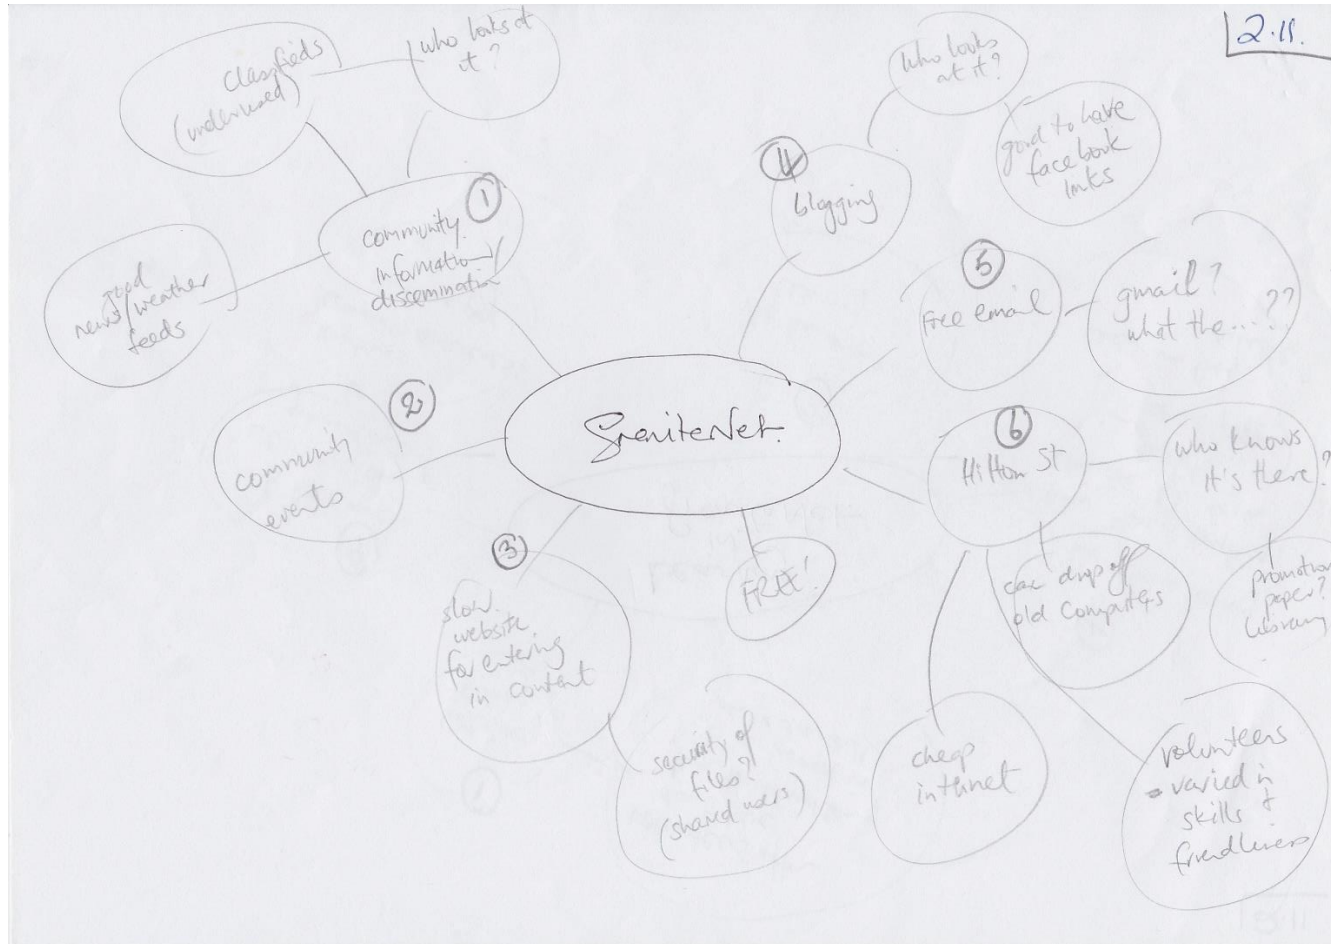 2.11.
Classifieds
(underused)
who looks at
it?
1
community
information/
dissemination
good
news/weather
feeds
2
community
events
3
slow
website
for entering
in content
security of
files?
(shared users)
GraniteNet.
FREE!
4
blogging
who looks
at it?
good to have
facebook
links
5
Free email
gmail?
what the....??
6
Hilton St
who knows
it's there?
promotion
paper?
library
can drop off
old computers
cheap
internet
volunteers
- varied in
skills &
friendliness